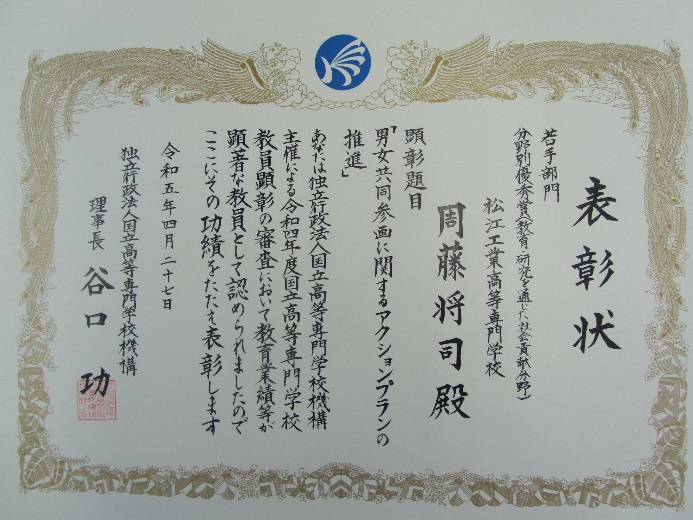 表彰状
若手部門
分野別優秀賞(教育・研究を通じた社会貢献分野)
松江工業高等専門学校
周藤将司殿
顕彰題目
「男女共同参画に関するアクションプランの
推進」
あなたは独立行政法人国立高等専門学校機構
主催による令和四年度国立高等専門学校
教員顕彰の審査において教育業績等が
顕著な教員として認められましたので
ここにその功績をたたえ表彰します
令和五年四月二十七日
独立行政法人国立高等専門学校機構
理事長 谷口 功